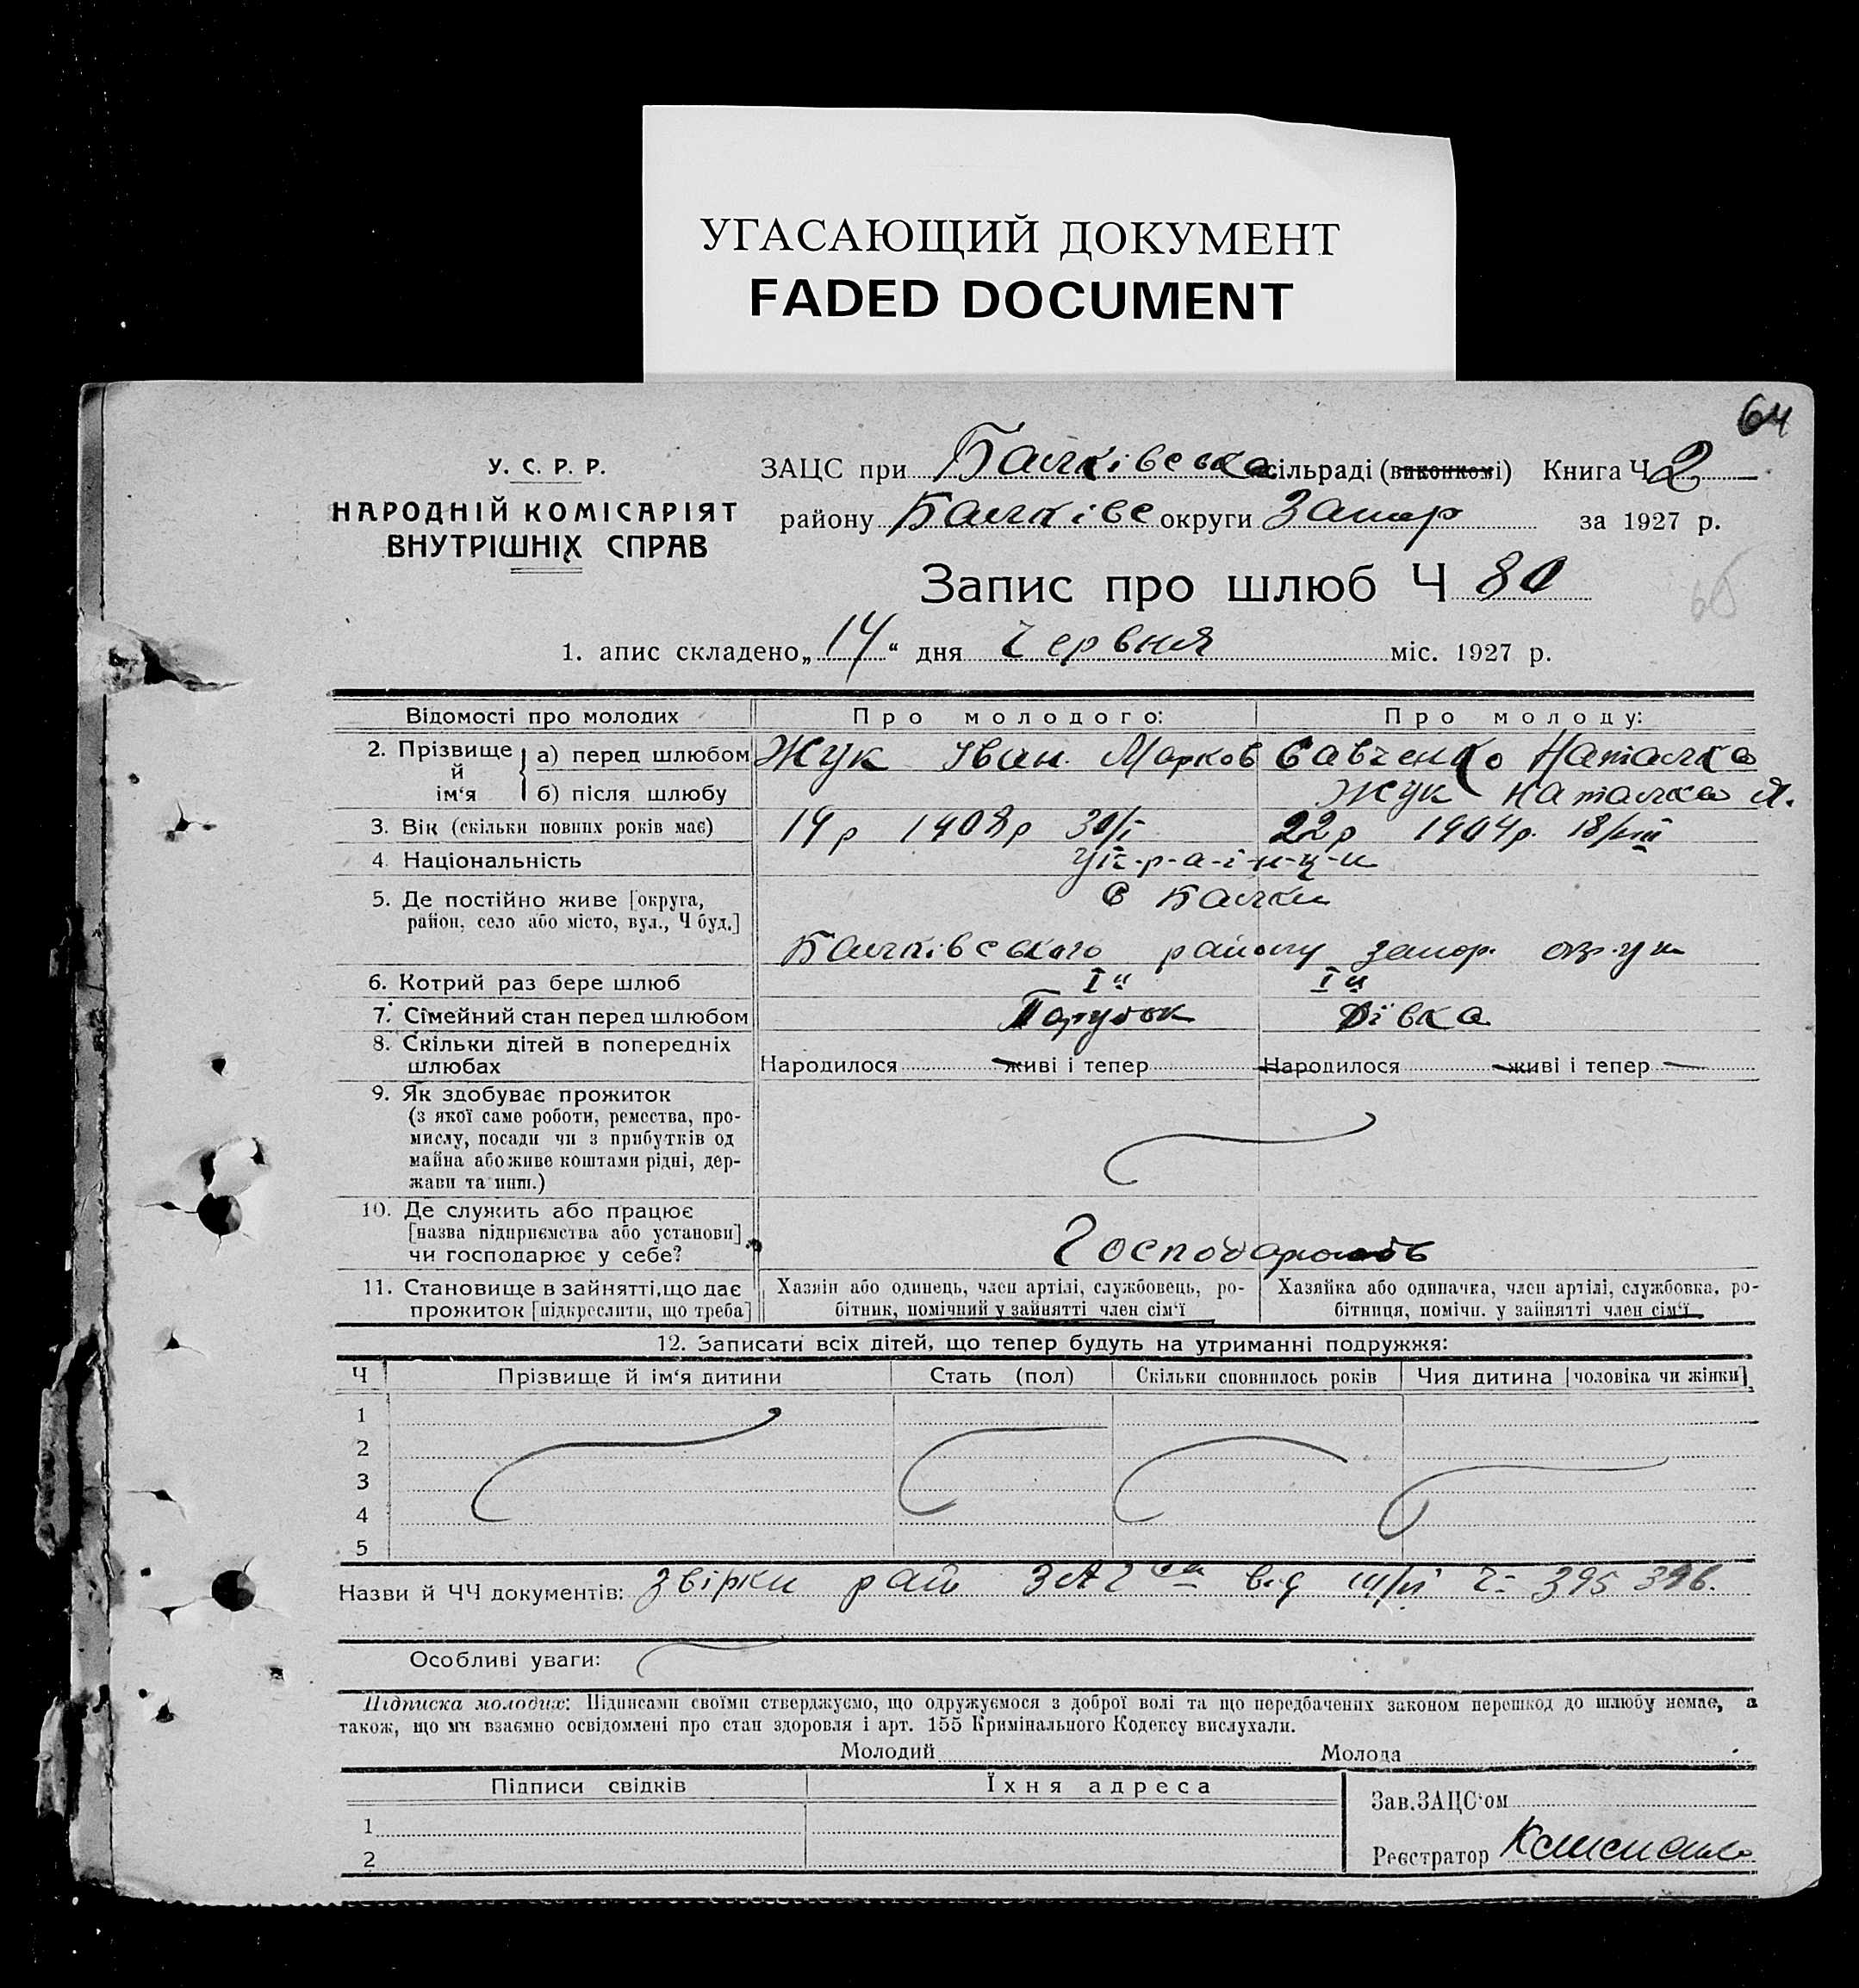 УГАСАЮЩИЙ ДОКУМЕНТ
FADED DOCUMENT
64
У. С. Р. Р.
НАРОДНІЙ КОМІСАРІЯТ
ВНУТРІШНІХ СПРАВ
ЗАЦС при Балківська сільраді (виконкомі) Книга Ч 2
району Балківс округи Запор за 1927 р.
Запис про шлюб Ч 80
1. апис складено „14“ дня Червня міс. 1927 р.
Відомості про молодих Про молодого: Про молоду:
2. Прізвище й ім‘я а) перед шлюбом Жук Іван Марков Савченко Наталка
б) після шлюбу Жук Наталка Я.
3. Вік (скільки повних років має) 19 р 1908 р 30/I 22 р 1904 р. 18/VIII
4. Національність Ук-р-а-ї-н-ц-и
5. Де постійно живе [округа, район, село або місто, вул., Ч буд.] С Балки
Балківського району запор. округи
6. Котрий раз бере шлюб I й I й
7. Сімейний стан перед шлюбом Парубок Дівка
8. Скільки дітей в попередніх шлюбах Народилося живі і тепер Народилося живі і тепер
9. Як здобуває прожиток
(з якої саме роботи, ремества, про-
мислу, посади чи з прибутків од
майна або живе коштами рідні, дер-
жави та инш.)
10. Де служить або працює
[назва підприємства або установи]
чи господарює у себе? Господарюють
11. Становище в зайнятті, що дає прожиток [підкреслити, що треба]
Хазяїн або одинець, член артілі, службовець, ро-
бітник, помічний у зайнятті член сім‘ї
Хазяйка або одиначка, член артілі, службовка, ро-
бітниця, помічн. у зайнятті член сім‘ї
12. Записати всіх дітей, що тепер будуть на утриманні подружжя:
Ч Прізвище й ім‘я дитини Стать (пол) Скільки сповнилось років Чия дитина [чоловіка чи жінки]
1
2
3
4
5
Назви й ЧЧ документів: Звірки рай від Ч- 395 396.
Особливі уваги:
Підписка молодих: Підписами своїми стверджуємо, що одружуємося з доброї волі та що передбачених законом перешкод до шлюбу немає, а
також, що ми взаємно освідомлені про стан здоровля і арт. 155 Кримінального Кодексу вислухали.
Молодий Молода
Підписи свідків Їхня адреса
1
2
Зав. ЗАЦС‘ом
Реєстратор